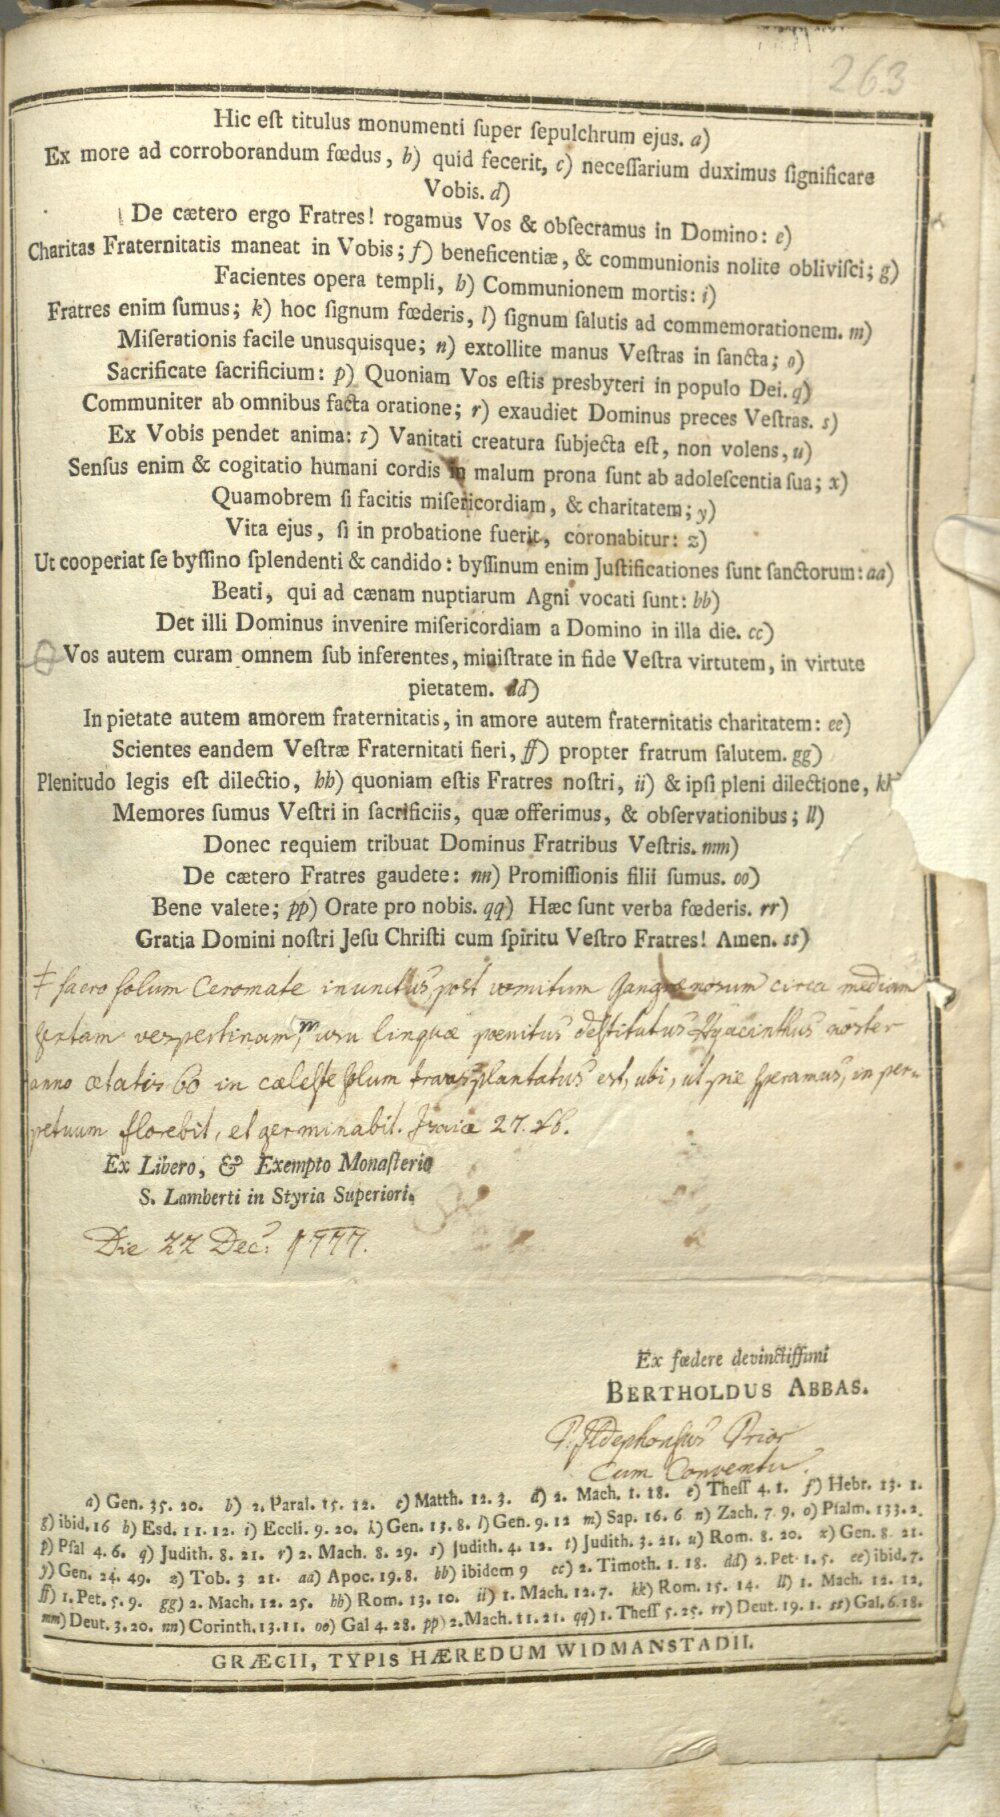 263
Hic eſt titulus monumenti ſuper ſepulchrum ejus. a)
Ex more ad corroborandum fœdus, b) quid fecerit, c) neceſſarium duximus ſignificare
Vobis. d)
De cætero ergo Fratres! rogamus Vos & obſecramus in Domino: e)
Charitas Fraternitatis maneat in Vobis; f) beneficentiæ, & communionis nolite obliviſci; g)
Facientes opera templi, h) Communionem mortis: i)
Fratres enim ſumus; k) hoc ſignum fœderis, l) ſignum ſalutis ad commemorationem. m)
Miſerationis facile unusquisque; n) extollite manus Veſtras in ſancta; o)
Sacrificate ſacrificium: p) Quoniam Vos eſtis presbyteri in populo Dei. q)
Communiter ab omnibus facta oratione; r) exaudiet Dominus preces Veſtras. s)
Ex Vobis pendet anima: t) Vanitati creatura ſubjecta eſt, non volens, u)
Senſus enim & cogitatio humani cordis in malum prona ſunt ab adoleſcentia ſua; x)
Quamobrem ſi facitis miſericordiam, & charitatem; y)
Vita ejus, ſi in probatione fuerit, coronabitur: z)
Ut cooperiat ſe byſſino ſplendenti & candido: byſſinum enim Juſtificationes ſunt ſanctorum: aa)
Beati, qui ad cænam nuptiarum Agni vocati ſunt: bb)
Det illi Dominus invenire miſericordiam a Domino in illa die. cc)
Vos autem curam omnem ſub inferentes, miniſtrate in fide Veſtra virtutem, in virtute
pietatem. dd)
In pietate autem amorem fraternitatis, in amore autem fraternitatis charitatem: ee)
Scientes eandem Veſtræ Fraternitati fieri, ff) propter fratrum ſalutem. gg)
Plenitudo legis eſt dilectio, hh) quoniam eſtis Fratres noſtri, ii) & ipſi pleni dilectione, kk)
Memores ſumus Veſtri in ſacrificiis, quæ offerimus, & obſervationibus; ll)
Donec requiem tribuat Dominus Fratribus Veſtris. mm)
De cætero Fratres gaudete: nn) Promiſſionis filii ſumus. oo)
Bene valete; pp) Orate pro nobis. qq) Hæc ſunt verba fœderis. rr)
Gratia Domini noſtri Jeſu Chriſti cum ſpiritu Veſtro Fratres! Amen. ss)
‡ ſacro ſolum Ceromate inunctus, post vomitum ſangvinorum circa mediam
ſextam vespertinam, usu linquæ pœnitus deſtitutus Hyacinthus noster
anno ætatis 60 in cæleſte ſolum transplantatus est, ubi, ut pie ſperamus, in per-
petuum florebit, et germinabit. Isaiæ 27. v6.
Ex Libero, & Exempto Monaſterio
S. Lamberti in Styria Superiori.
Die 22 Dec: 1777.
Ex fœdere devinctiſſimi
BERTHOLDUS ABBAS.
P. Ildephonſus Prior
Cum Conventu.
a) Gen. 35. 20. b) 2. Paral. 15. 12. c) Matth. 12. 3. d) 2. Mach. 1. 18. e) Theſſ 4. 1. f) Hebr. 13. 1.
g) ibid. 16 h) Esd. 11. 12. i) Eccli. 9. 20. k) Gen. 13. 8. l) Gen. 9. 12 m) Sap. 16. 6 n) Zach. 7. 9. o) Pſalm. 133. 2.
p) Pſal 4. 6. q) Judith. 8. 21. r) 2. Mach. 8. 29. s) Judith. 4. 12. t) Judith. 3. 21. u) Rom. 8. 20. x) Gen. 8. 21.
y) Gen. 24. 49. z) Tob. 3 21. aa) Apoc. 19. 8. bb) ibidem 9 cc) 2. Timoth. 1. 18. dd) 2. Pet. 1. 5. ee) ibid. 7.
ff) 1. Pet. 5. 9. gg) 2. Mach. 12. 25. hh) Rom. 13. 10. ii) 1. Mach. 12. 7. kk) Rom. 15. 14. ll) 1. Mach. 12. 12.
mm) Deut. 3. 20. nn) Corinth. 13. 11. oo) Gal 4. 28. pp) 2. Mach. 11. 21. qq) 1. Theſſ 5. 25. rr) Deut. 19. 1. ss) Gal. 6. 18.
GRÆCII, TYPIS HÆREDUM WIDMANSTADII.